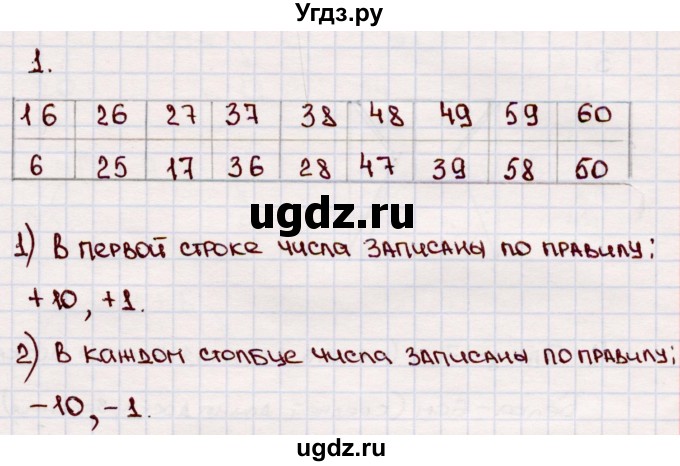 Угдз.ру
1.
16 26 27 37 38 48 49 59 60
6 25 17 36 28 47 39 58 60
ugdz.ru
1) В первой строке числа записаны по правилу:
+10, +1.
2) В каждом столбце числа записаны по правилу:
-10, -1.
ugdz.ru